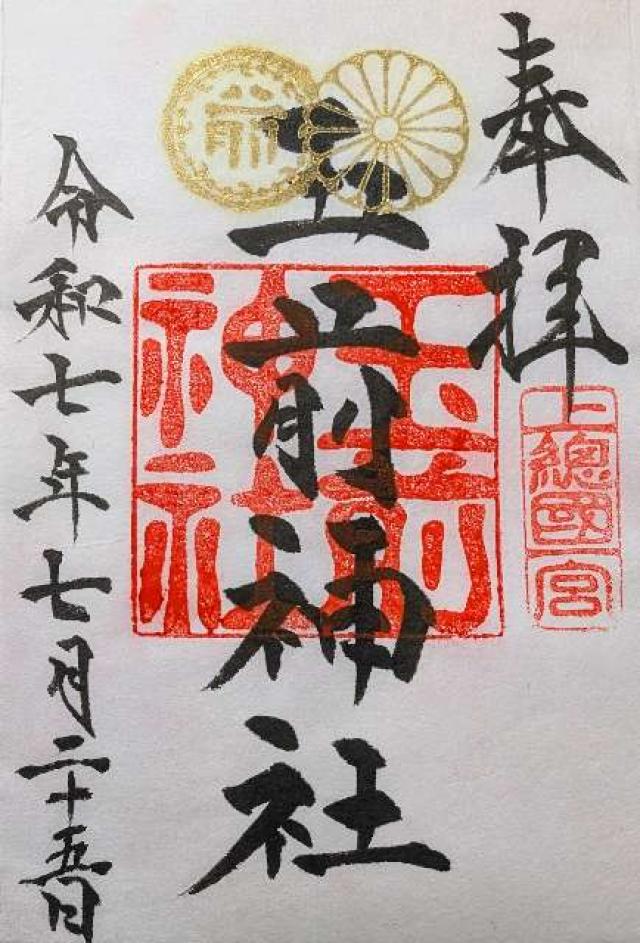 奉拝
上總國一宮
玉前神社
玉前神社
令和七年七月二十五日